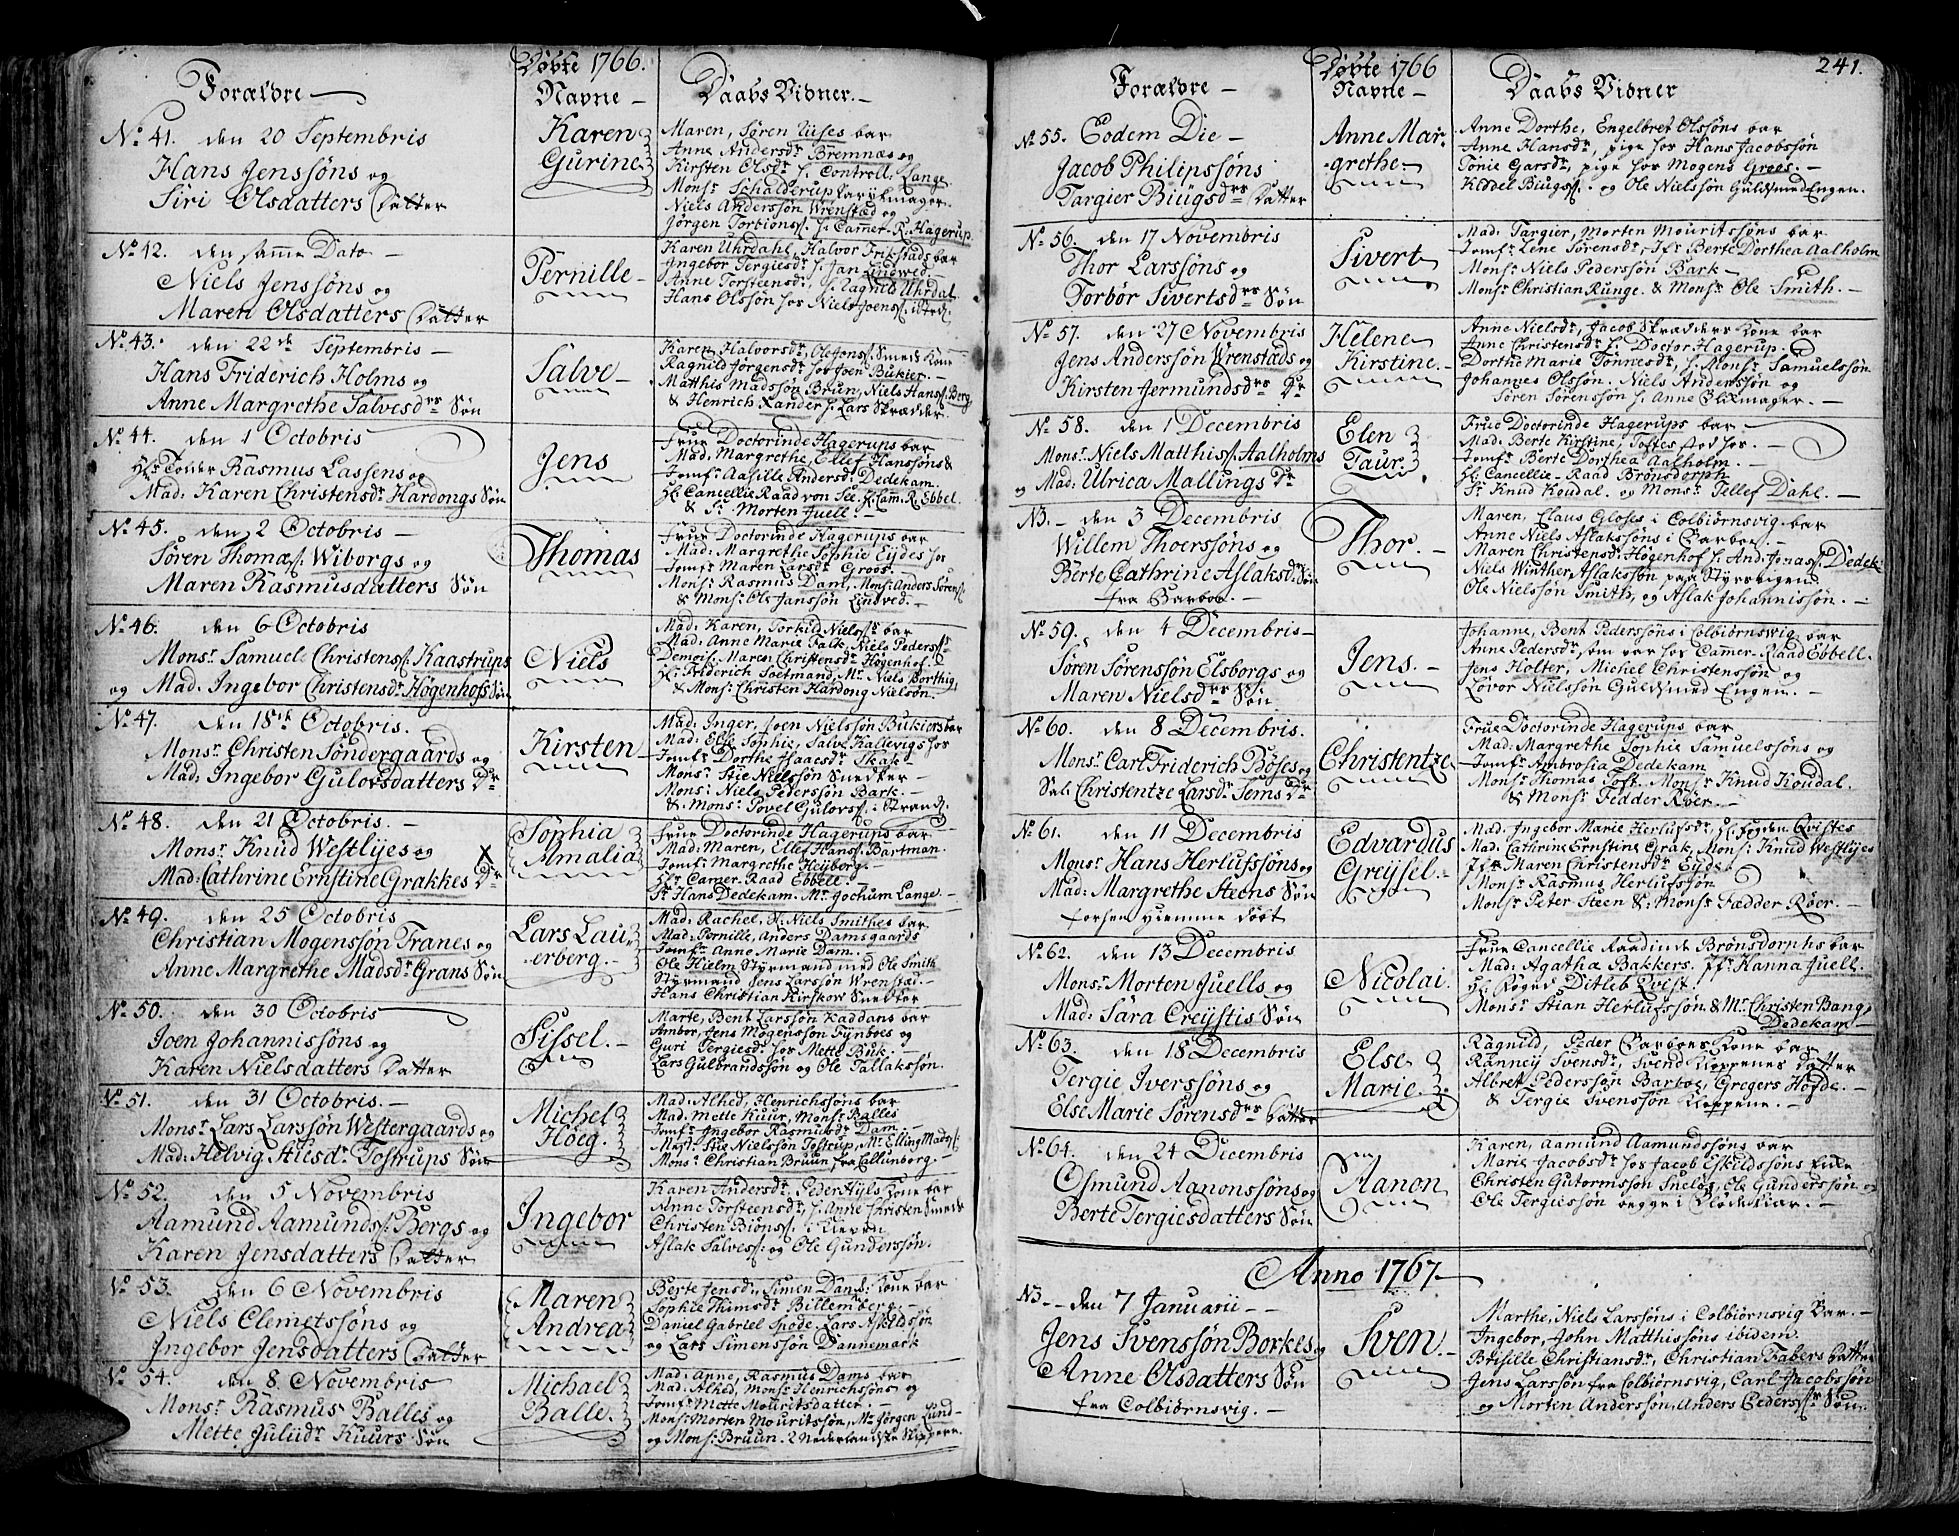 Forældre
Døbte 1766.
Navne
Daabs Vidner.
No 41. den 20 Septembris
Hans Jenssøns og
Siri Olsdatters Datter
Karen
Gurine
Maren, Søren Liises bar
Anne Andersdr Bremnæs og
Kirsten Olsdr h. Controll. Lange
Monsr Schalderup
Niels Anderssøn Wrenstæd og
Jørgen Torbionss. h. Camer. R. Hagerup
No 42. den samme Dato
Niels Jenssøns og
Maren Olsdatters Datter
Pernille
Karen Uhrdahl, Halvor Frikstads bar
Ingebor Tergiesdr h. Jan Lindved
Anne Torsteensdr h. Ragnild Uhrdal
Hans Olssøn hos Niels Joenss. ibid.
No 43. den 22de Septembris
Hans Friderich Holms og
Anne Margrethe Salvesdrs Søn
Salve
Karen Halvorsdr, Ole Jonss. Smeds Kone
Ragnild Jørgensdr hos Joen Bukier.
Matthis Madssøn Bruun, Niels Hanss. Berg
& Henrich Xander h. Lars Skrædder.
No 44. den 1 Octobris
Hr Toller Rasmus Lassens og
Mad: Karen Christensdr Hardongs Søn
Jens
Frue Doctorinde Hagerups bar
Mad: Margrethe, Ellef Hanssøns &
Jomfr Aasille Andersdr Dedekam.
Hr Cancellie Raad von See, Hr Cam. R. Ebbel
& Sr Morten Juell.
No 45. den 2 Octobris
Søren Thomæs. Wiborgs og
Maren Rasmusdatters Søn
Thomas
Frue Doctorinde Hagerups bar
Mad: Margrethe Sophie Eydes hos
Jomfr Maren Larsdr Groos.
Monsr Rasmus Dam, Monsr Anders Sørenss.
& Monsr Ole Janssøn Lindved.
No 46. den 6 Octobris
Monsr Samuel Christenss. Kaastrups
og Mad: Ingebor Christensdr Høgenhofs Søn
Niels
Mad: Karen, Torkild Nielsss. bar
Mad: Anne Marie Falk, Niels Pederss.
Demois. Maren Christensdr Høgenhof.
Hr Friderich Soetmand, Mr Niels Borthig,
& Monsr Christen Hardong Nielsøn.
No 47. den 18de Octobris.
Monsr Christen Søndergaards og
Mad: Ingebor Gulovsdatters Dr
Kirsten
Mad: Inger, Joen Nielssøn Bukiers bar
Mad: Else Sophie, Salve Kallevigs hos
Jomfr Dorthe Haaesdr Skak
Monsr Stie Nielssøn Snedker
Monsr Niels Pederssøn Bark.
& Monsr Povel Gulovs. i Strand.
No 48. den 21 Octobris.
Monsr Knud Westlyes og
Mad: Cathrine Ernstine Grakkes Dr
Sophia
Amalia
Frue Doctorinde Hagerups bar
Mad: Maren, Ellef Hanss. Bartman.
Jomfr Margrethe Heyborg.
Hr Camer Raad Ebbell.
Sr Hans Dedekam. Mr Jochum Lange.
No 49. den 25 Octobris
Christian Mogenssøn Tranes og
Anne Margrethe Madsdr Grans Søn
Lars Lau-
erberg.
Mad: Rachel, Sr Niels Smithes bar
Mad: Pernille, Anders Damsgaards
Jomfr Anne Marie Dam.
Ole Hielm Styrmand med Ole Smith
Styrmand Jens Larssøn Wrenstæd.
Hans Christian Kirskow Snedker
No 50. den 30 Octobris
Joen Johannissøns og
Karen Nielsdatters Datter
Sissel.
Marte, Bent Larssøn Kaddans bar
Ambor, Jens Mogenssøn Fynboes og
Guri Tergiesdr hos Mette Buk.
Lars Gulbrandssøn og Ole Tallakssøn.
No 51. den 31 Octobris.
Monsr Lars Larssøn Westergaards og
Mad: Helvig Stiesdr Tostrups Søn
Michel
Høeg.
Mad: Alhed, Henrichsøns bar
Mad: Mette Kuur, Monsr Balles
Jomfr Ingebor Rasmusdr Dam.
Monsr Stie Nielssøn Tostrup, Mr Elling Madss.
Monsr Christian Bruun fra Callunborg.
No 52. den 5 Novembris
Aamund Aamundss. Bergs og
Karen Jensdatters Datter
Ingebor
Karen Andersdr, Peder Hyls Kone bar
Anne Torsteensdr h. Anne Christen Smeds
Christen Biønss. i Kleven
Aslak Salvess. og Ole Gunderssøn.
No 53. den 6 Novembris
Niels Clemetssøns og
Ingebor Jensdatters Datter
Maren
Andrea
Berte Jensdr, Simen Danes Kone bar
Sophie Thimsdr Billemberg.
Daniel Gabriel Spode, Lars Askildssøn
og Lars Simenssøn Dannemark
No 54. den 8 Novembris
Monsr Rasmus Balles og
Mette Juliidr Kuurs Søn
Michael
Balle.
Mad: Anne, Rasmus Dams bar
Mad: Alhed, Monsr Henrichsøns og
Jomfr Mette Mouritsdatter.
Monsr Morten Mouritssøn, Mr Jørgen Lund
og Monsr Bruun. 2 Nederlandske Skippere.
241.
Forældre
Døbte 1766
Navne
Daabs Vidner
No 55. Eodem Die
Jacob Philipssøns
Targier Biugsdrs Datter
Anne Mar-
grethe.
Anne Dorthe, Engelbret Olssøns bar
Anne Hansdr, pige hos Hans Jacobssøn
Tonie Garsdr, pige hos Mogens Groos.
Keddel Biugss. og Ole Nielssøn Guldsmed Engen.
No 56. den 17 Novembris
Thor Larssøns og
Torbør Sivertsdrs Søn
Sivert
Mad: Targier, Morten Mouritssøns bar
Jomfr Lene Sørensdr, Jfr Berte Dorthea Aalholm
Monsr Niels Pederssøn Bark
Monsr Christian Runge. & Monsr Ole Smith.
No 57. den 27 Novembris
Jens Anderssøn Wrenstads og
Kirsten Jermundsdrs Dr
Helene
Kirstine.
Anne Nielsdr, Jacob Skrædders Kone bar
Anne Christensdr h. Doctor Hagerup.
Dorthe Marie Tønnesdr, h. Monsr Samuelssøn
Johannes Olssøn, Niels Anderssøn og
Søren Sørenssøn h. Anne Blikmager.
No 58. den 1 Decembris
Monsr Niels Matthiss. Aalholms
og Mad: Ulrica Mallings Dr
Elen
Taur.
Frue Doctorinde Hagerups bar
Mad: Berte Kirstine, Tofte stod hos.
Jomfr Berte Dorthea Aalholm.
Hr Cancellie-Raad Brønsdorph
Sr Knud Koudal, og Monsr Tellef Dahl.
N3. den 3 Decembris
Willem Thoerssøns og
Berte Cathrine Aslaksdrs Søn
fra Barboe.
Thor.
Maren, Claus Gloses i Colbiørnsvig bar
Anne Niels Aslakssøns i Barboe.
Maren Christensdr Høgenhof h. And: Jonass. Dedek.
Niels Winther Aslakssøn paa Styrsvigen
Ole Nielssøn Smith, og Aslak Johannissøn.
No 59. den 4 Decembris
Søren Sørenssøn Elsborgs og
Maren Nielsdrs Søn
Jens.
Johanne, Bent Pederssøns i Colbiørnsvig bar
Anne Pedersdr, som var hos Camer-Raad Ebbell.
Jens Holter, Michel Christenssøn og
Lovor Nielssøn Guldsmed Engen.
No 60. den 8 Decembris.
Monsr Carl Friderich Bøses og
Sal: Christentze Larsdr Sems Dr
Christentze
Frue Doctorinde Hagerups bar
Mad: Margrethe Sophie Samuelssøns og
Jomfr Ambrosia Dedekam
Monsr Thomas Toft. Monsr Knud Koudal
& Monsr Fedder Røer.
No 61. den 11 Decembris
Monsr Hans Herlufssøns og
Mad: Margrethe Steens Søn
forhen hiemme døbt
Edvardus
Greysel.
Mad: Ingebor Marie Herlufsdr, Hr Fogden Qvistes
Mad: Cathrine Ernstine Grak, Monsr Knud Westlyes
Jfr Maren Christensdr Eyde.
Monsr Rasmus Herlufssøn
Monsr Peter Steen & Monsr Fædder Røer.
No 62. den 13 Decembris
Monsr Morten Juells og
Mad: Sara Creystis Søn
Nicolai.
Frue Cancellie Raadinde Brønsdorphs bar
Mad: Agatha Bakkers. Jfr Hanna Juell.
Hr Foged Ditleb Qvist.
Monsr Stian Herlufssøn & Mr Christen Bang,
Dedekam
No 63. den 18 Decembris
Tergie Iverssøns og
Else Marie Sørensdrs Datter
Else
Marie.
Ragnild, Peder Barboes Kone bar
Ranney Svensdr, Svend Kleppenes Datter
Albret Pederssøn Barboe, Gregers Hovde.
& Tergie Svenssøn Kleppene.
No 64. den 24 Decembris
Osmund Aanonssøns og
Berte Tergiesdatters Søn
Aanon
Karen, Aamund Aamundssøns bar
Marie Jacobsdr hos Jacob Eskildssøns Enke
Christen Gutormssøn Sneløs, Ole Gunderssøn og
Ole Tergiessøn begge i Flødekiær.
Anno 1767
N3. den 7 Januarii
Jens Svenssøn Borkes og
Anne Olsdatters Søn
fra Colbiørnsvig.
Sven.
Marthe, Niels Larssøns i Colbiørnsvig bar.
Ingebor, John Matthissøns ibidem.
Brisille Christiansdr, Christian Fabers Datter
Jens Larssøn fra Colbiørnsvig, Carl Jacobssøn
og Morten Anderssøn, Anders Pederss. Søn.